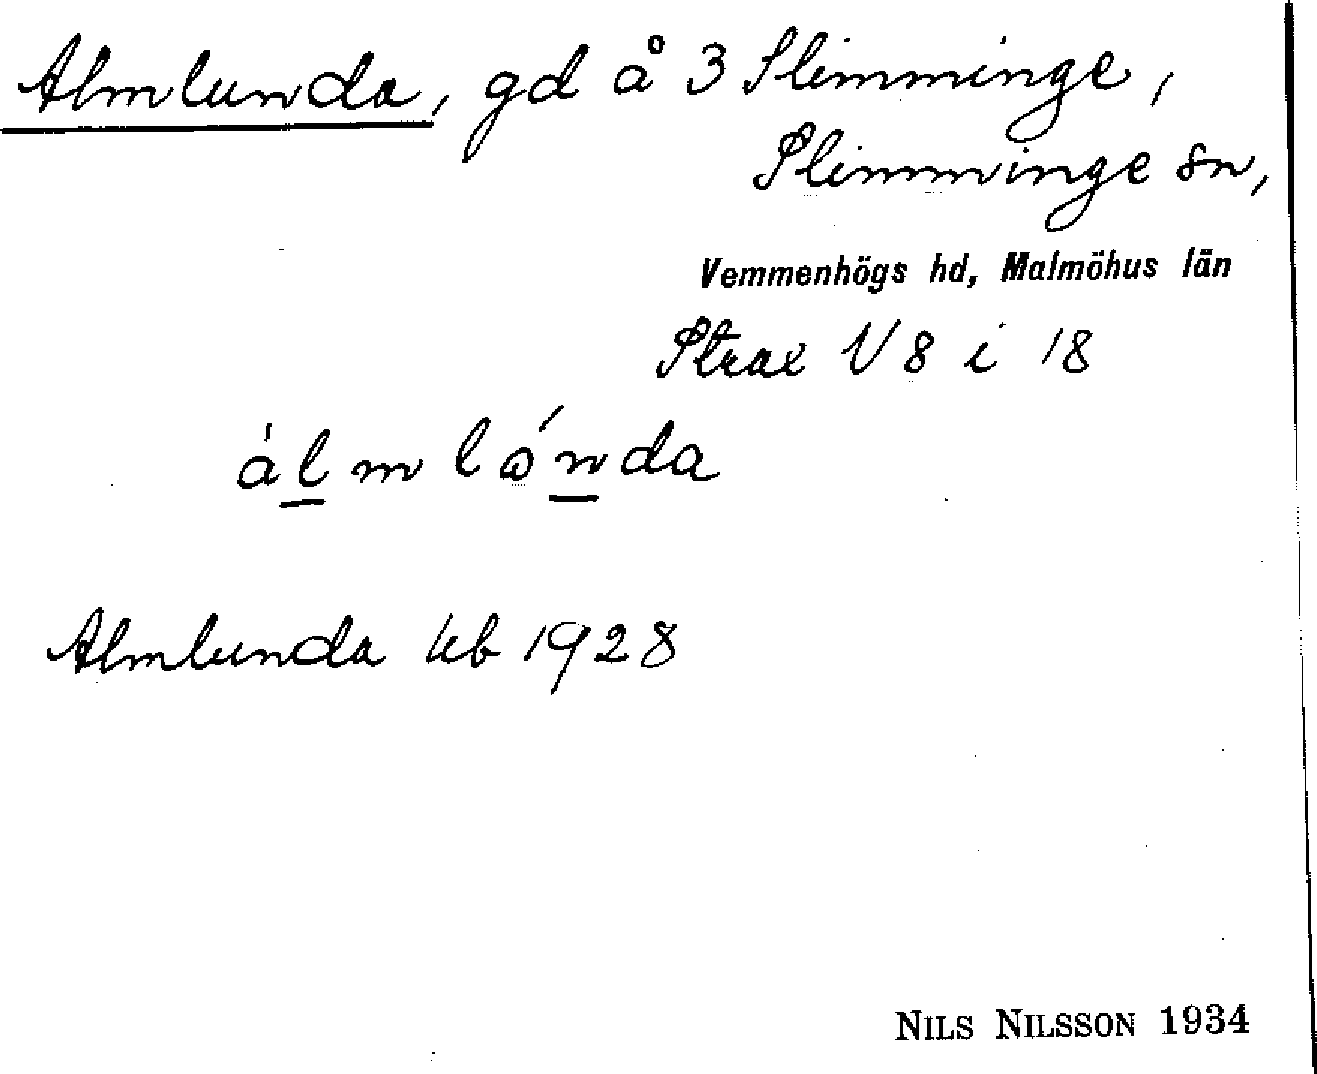 Almlunda, gd å 3 Slimminge,
Slimminge sn,
Vemmenhögs hd, Malmöhus län
Strax V 8 i 18
àlmlǿnda
Almlunda kb 1928
NILS NILSSON 1934